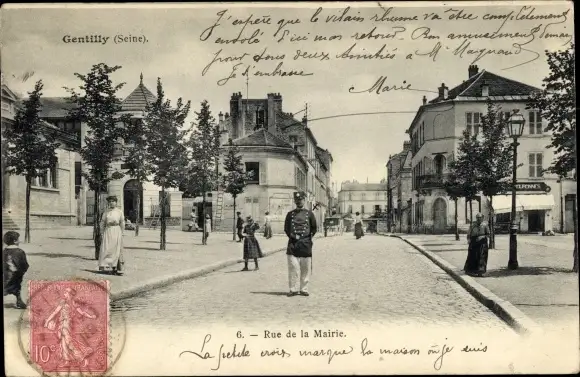 Gentilly (Seine).
J'espère que le vilain rhume va être complètement
envolé d'ici mon retour. Bon amusement demain
pour tous deux. Amitiés à M. Magnaud
Je t'embrasse
Marie
10
6. — Rue de la Mairie.
La petite croix marque la maison où je suis